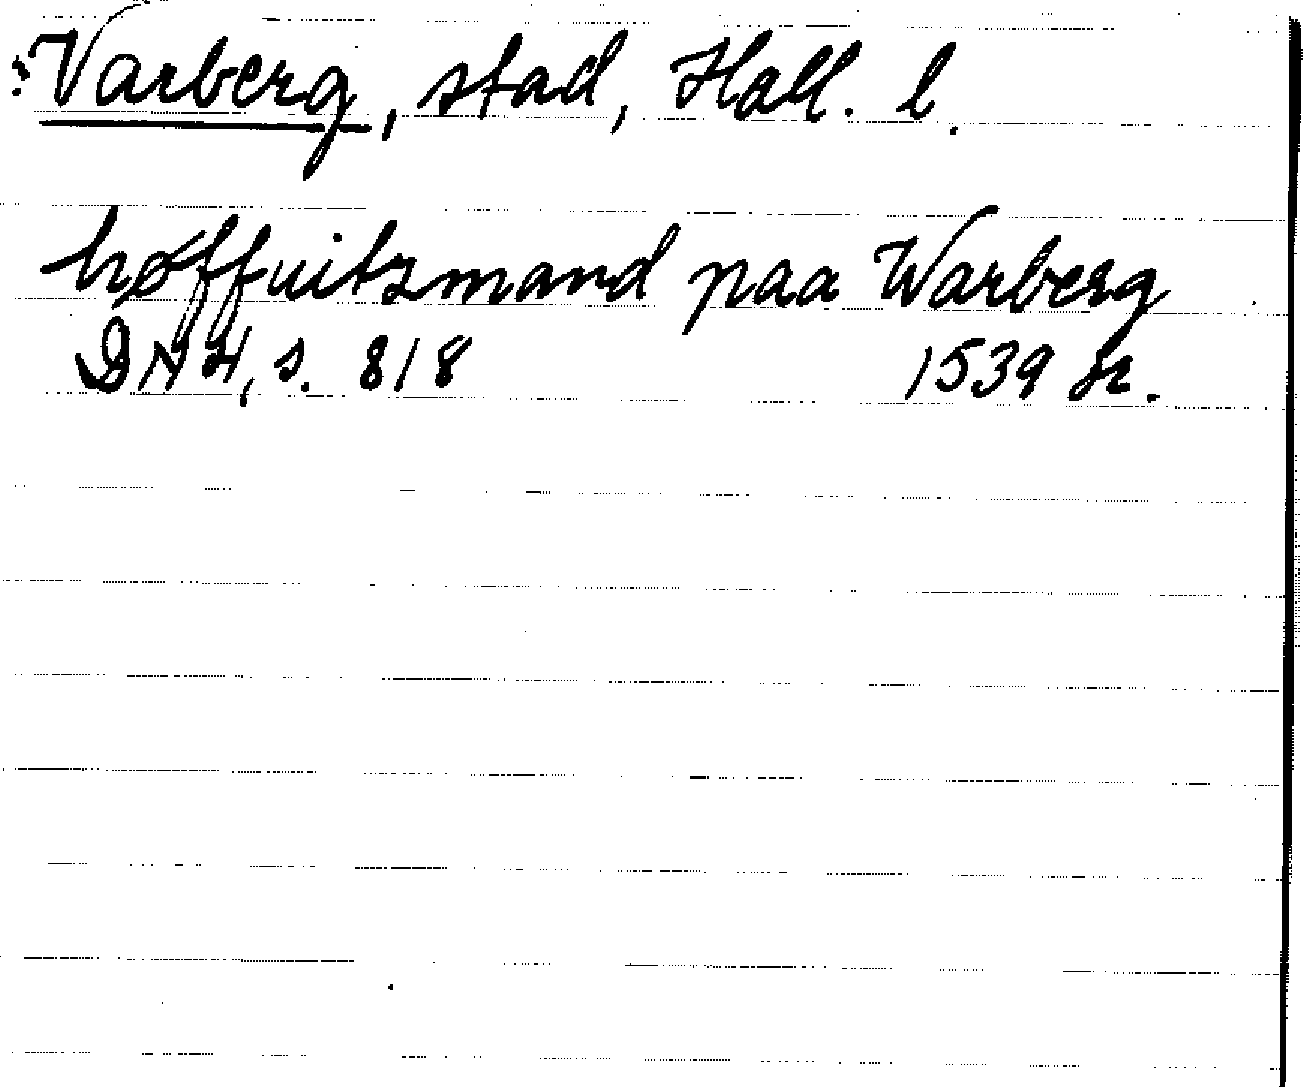 Varberg, stad, Hall. l.
høffuitzmand paa Warberg
DN 4, s. 818 1539 or.